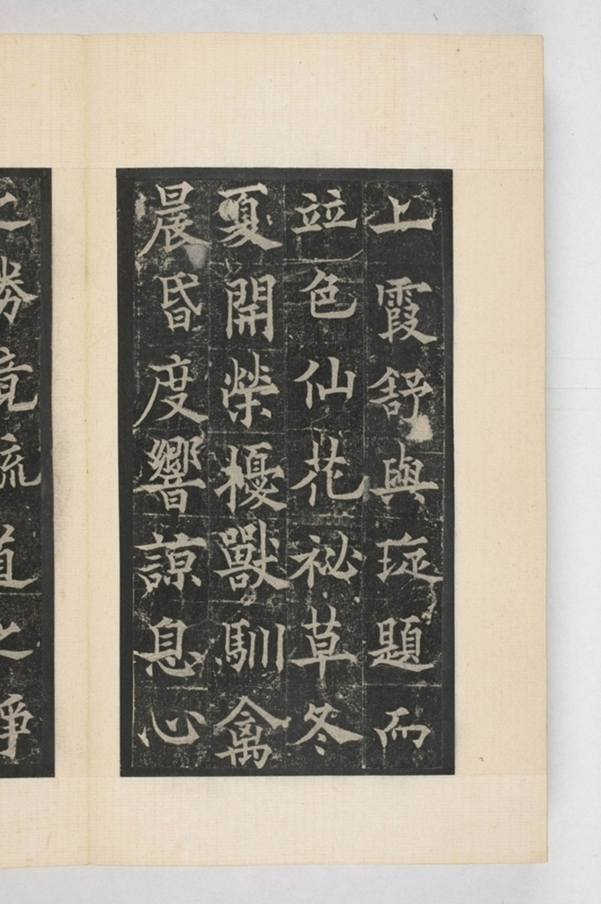 上霞舒與琁題而
竝色仙花祕草冬
夏開榮擾獸馴禽
晨昏度響諒息心
之勝竟疏道之淨